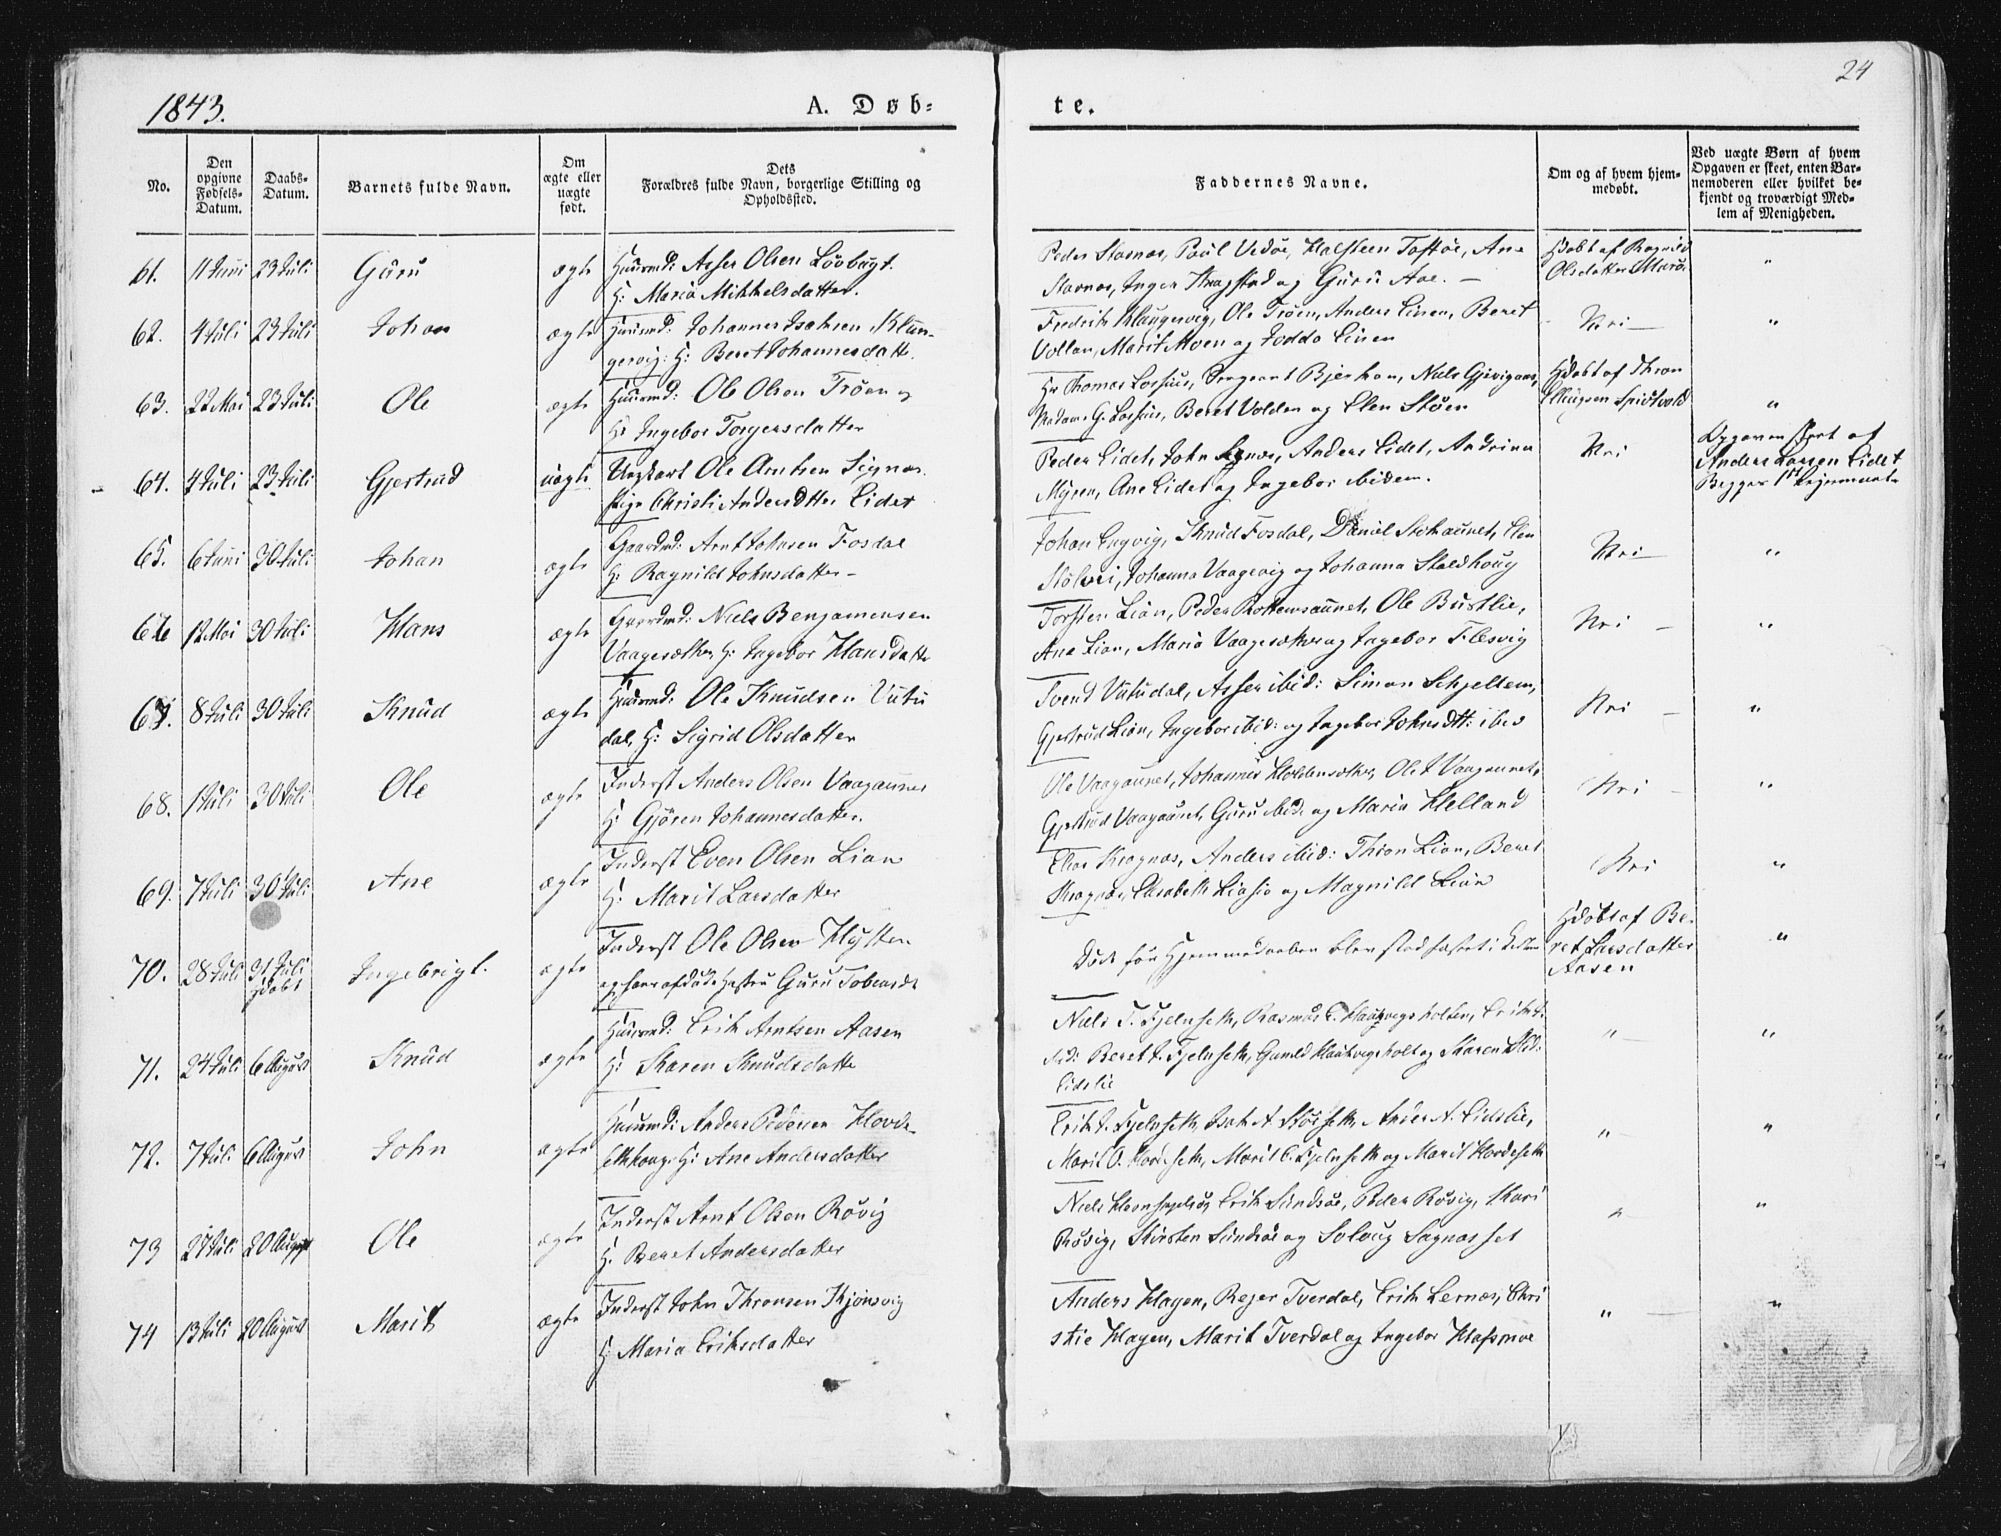 1843.
A. Døb=
te.
24
No.
Den opgivne Fødsels-Datum.
Daabs-Datum.
Barnets fulde Navn.
Om ægte eller uægte født.
Dets Forældres fulde Navn, borgerlige Stilling og Opholdssted.
Faddernes Navne.
Om og af hvem hjem-medøbt.
Ved uægte Børn af hvem Opgaven er skeet, enten Bar-nemoderen eller hvilket be-kjendt og troværdigt Med-lem af Menigheden.
61. 11 Juni 23 Juli Guru ægte Huusmd: Asser Olsen
H: Maria Mikkelsdatter.
Peder Stavnes, Poul Vedøe, Halsteen Tostøe, Ane
Stavnes, Inger og Guru Aae. —
Hdøbt af Ragnild
Olsdatter
"
62. 4 Juli 23 Juli Johan ægte Huusmd: Johannes Isaksen Klun-
gervig: H: Beret Johannesdatt.
Fredrik Klungervig, Ole Trøen, Anders Einen, Beret
Vollan, Marit Moen og Einen
Nei —
"
63. 22 Mai 23 Juli Ole ægte Huusmd: Ole Olsen Trøen og
H: Ingebor Torgersdatter
Hr Thomas Lossius, Sergeant Bjerkan, Niels
Madame G. Lossius, Beret Volden og Elen Støen
Hdøbt af Thron
Ellingsen
"
64. 4 Juli 23 Juli Gjertrud uægte Ungkarl Ole Arntsen
Pige Christi Andersdtter Eidet
Peder Eidet, John, Anders Eidet, Andrina
Myren, Ane Eidet og Ingebor ibidem.
Nei
Opgaven skeet af
Anders Larsen Eidet
65. 6 Juni 30 Juli Johan ægte Gaardmd: Arnt Johnsen Fosdal
H: Ragnild Johnsdatter —
Johan Engvig, Knud Fosdal, Daniel, Elen
Johanna Vaagevig og Johanna
Nei —
"
66 12 Mai 30 Juli Hans ægte Gaardmd: Niels Benjaminsen
Vaagesæther, H: Ingebor Hansdatter
Torsten Lian, Peder Rottemsaunet, Ole Bustlie,
Ane Lian, Maria Vaagesæther og Ingebor Flesvig
Nei —
"
67. 8 Juli 30 Juli Knud ægte Huusmd: Ole Knudsen Vutu
dal, H: Sigrid Olsdatter
Svend Vutudal, Asser ibid: Simon Schjellem,
Gjertrud Lian, Ingebor ibid: og Ingebor Johnsdtt: ibid
Nei —
"
68. 1 Juli 30 Juli Ole ægte Inderst Anders Olsen Vaagaunet
H: Gjøren Johannesdatter.
Ole Vaagaunet, Johannes, Ole J. Vaagaunet,
Gjertrud Vaagaunet, Guru ibid: og Maria Helland
Nei —
"
69. 7 Juli 30 Juli Ane ægte Inderst Even Olsen Lian
H: Marit Larsdatter
Elias Kragnæs, Anders ibid: Thron Lian, Beret
Kragnæs, Elisabeth og Magnild Lian
Nei
"
70. 28 Juli 31 Juli
Hdøbt
Ingebrigt. ægte Inderst Ole Olsen Hysten
og hans afdøde Hustru Guru
Døde før Hjemmedaaben blev stadfæstet i Kirken
Hdøbt af Be-
ret Larsdatter
Aasen
"
71. 24 Juli 6 August Knud ægte Huusmd: Erik Arntsen Aasen
H: Karen Knudsdatter
Niels J. Fjelnseth, Rasmus, Erik J.
ibid: Beret J. Fjelnseth, og Karen
Eidslie
"
"
72. 7 Juli 6 August John ægte Huusmd: Anders Pedersen Hovde-
H: Ane Andersdatter
Erik J. Fjelnseth, Isak A. Støiseth, Anders A. Eidslie,
Marit O. Hovdeseth, Marit E. Fjelnseth og Marit Hovdeseth
"
"
73 27 Juli 20 August Ole ægte Inderst Arnt Olsen Røvig
H: Beret Andersdatter
Niels, Erik Sundsøe, Peder Røvig, Kari
Røvig, Kirsten Sundsøe og Solvug
"
"
74 13 Juli 20 August Marit ægte Inderst John Thronsen Kjønsvig
H: Maria Eriksdatter
Anders Hagen, Reger Tverdal, Erik Lernæs, Chri
stie Hagen, Marit Tverdal og Ingebor Hafsmoe
"
"